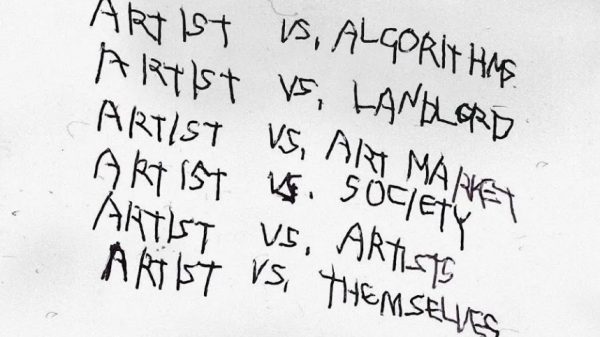 ARTIST VS. ALGORITHMS
ARTIST VS. LANDLORD
ARTIST VS. ART MARKET
ARTIST VS. SOCIETY
ARTIST VS. ARTISTS
ARTIST VS. THEMSELVES